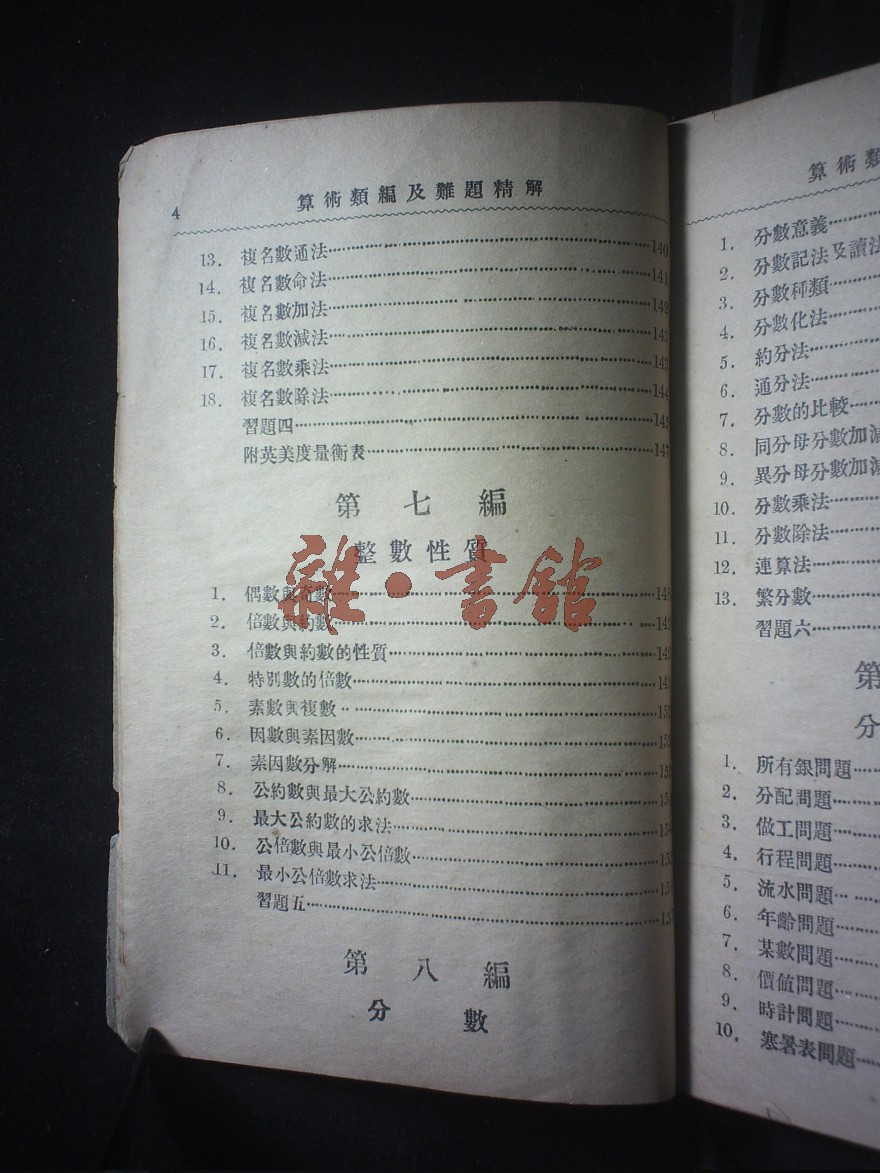 4 算術類編及難題精解
13. 複名數通法 140
14. 複名數命法 141
15. 複名數加法 142
16. 複名數減法 143
17. 複名數乘法 143
18. 複名數除法 144
習題四 145
附英美度量衡表 147
第七編
整數性質
1. 偶數與奇數 148
2. 倍數與約數 149
3. 倍數與約數的性質 149
4. 特別數的倍數 149
5. 素數與複數 152
6. 因數與素因數
7. 素因數分解 153
8. 公約數與最大公約數 154
9. 最大公約數的求法 154
10. 公倍數與最小公倍數
11. 最小公倍數求法
習題五 157
第八編
分數
雜·書館
算術類
1. 分數意義
2. 分數記法及讀法
3. 分數種類
4. 分數化法
5. 約分法
6. 通分法
7. 分數的比較
8. 同分母分數加減
9. 異分母分數加減
10. 分數乘法
11. 分數除法
12. 連算法
13. 繁分數
習題六
第
分
1. 所有銀問題
2. 分配問題
3. 做工問題
4. 行程問題
5. 流水問題
6. 年齡問題
7. 某數問題
8. 價值問題
9. 時計問題
10. 寒暑表問題